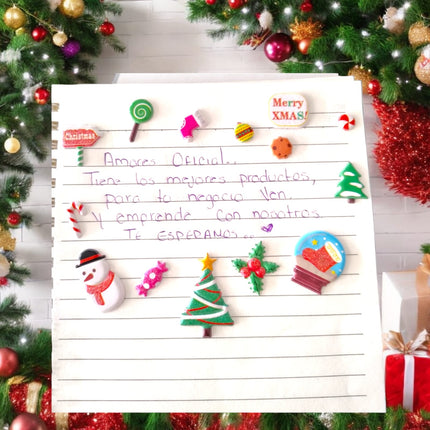 Merry
XMAS!
Christmas
Amores Oficial..
Tiene los mejores productos,
para tu negocio Ven.
y emprende con nosotros
TE ESPERAMOS...